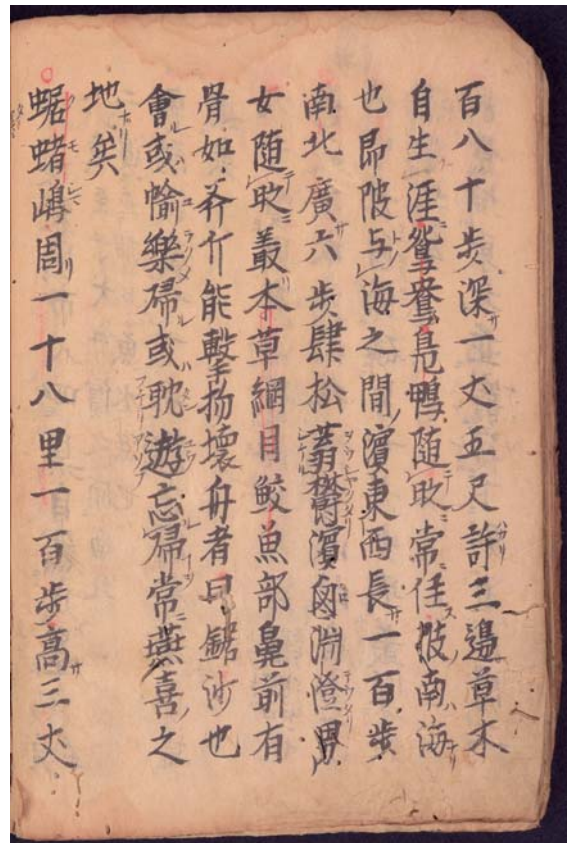 百八十歩深一丈五尺許三邉草木
自生涯鴛鴦鳬鴨随时常住彼南海
也即陂与海之間濱東西長一百歩
南北廣六歩肆松蓊欝濱鹵淵澄男
女随时叢本草綱目鮫魚部鼻前有
骨如斧斤能擊物壊舟者曰鋸沙也
會或愉樂帰或耽遊忘帰常燕喜之
地矣
蜛蝫嶋周一十八里一百歩高三丈